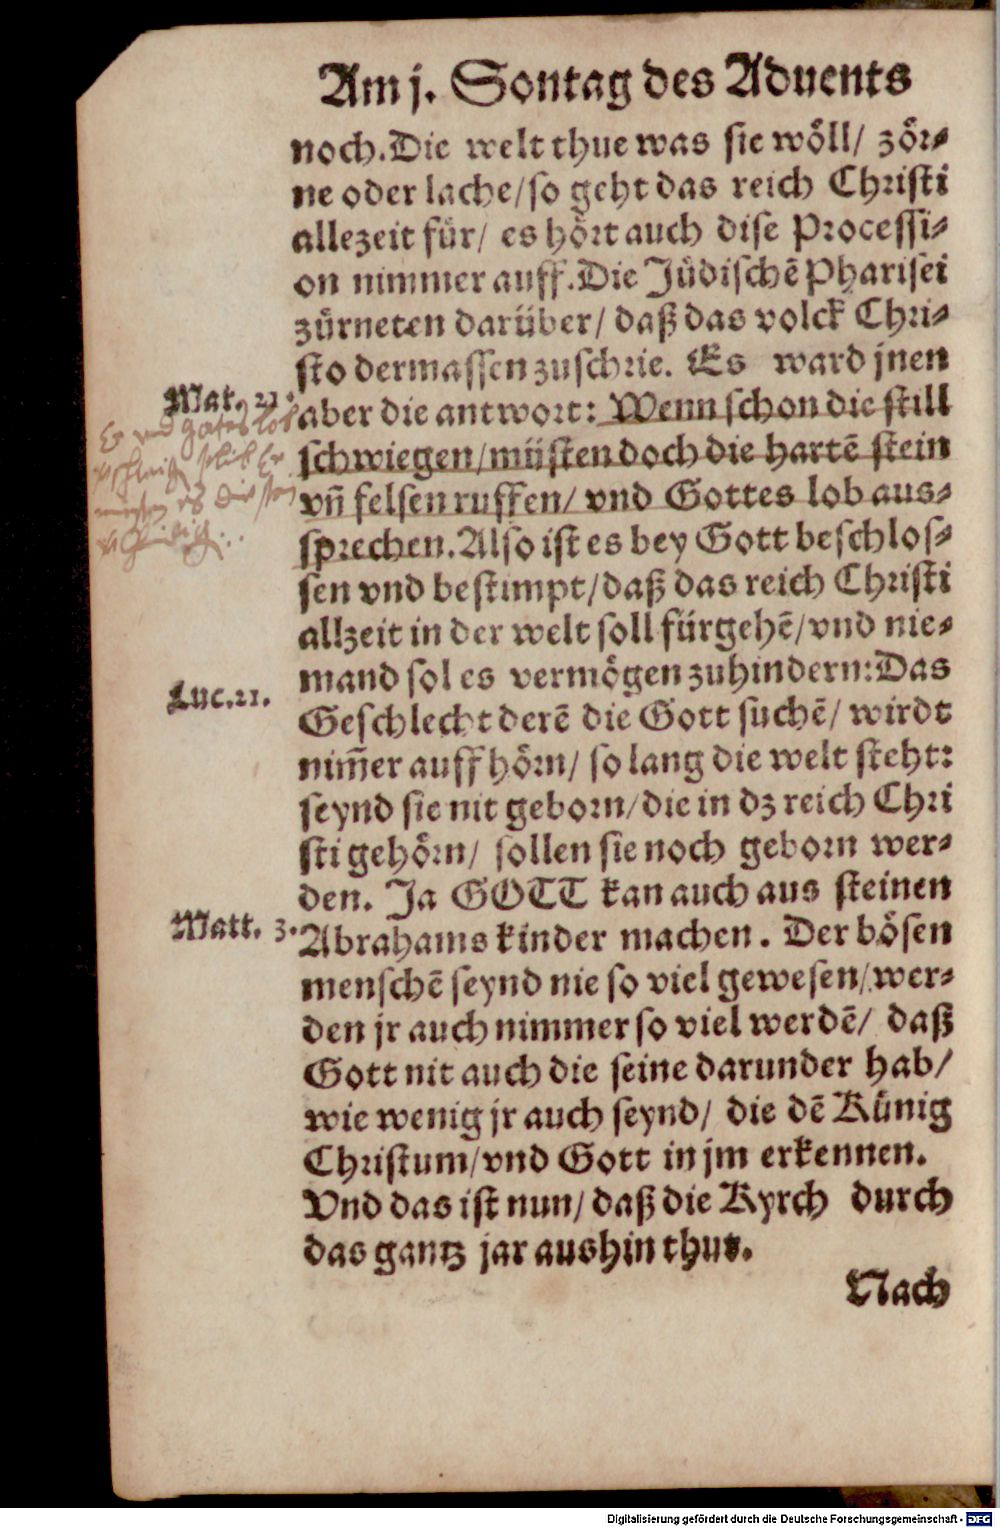 Am j. Sontag des Aduents
noch. Die welt thue was sie wöll/ zör-
ne oder lache/ so geht das reich Christi
allezeit für/ es hört auch dise Processi-
on nimmer auff. Die Jüdischē Pharisei
zürneten darüber/ daß das volck Chri-
sto dermassen zuschrie. Es ward jnen
Mat. 21.
aber die antwort: Wenn schon die still
schwiegen/ müsten doch die hartē stein
vn̄ felsen ruffen/ vnd Gottes lob aus-
sprechen. Also ist es bey Gott beschlos-
sen vnd bestimpt/ daß das reich Christi
allzeit in der welt soll fürgehē/ vnd nie-
mand sol es vermögen zuhindern: Das
Luc. 21.
Geschlecht derē die Gott suchē/ wirdt
nim̄er auff hörn/ so lang die welt steht:
seynd sie nit geborn/ die in dz reich Chri
sti gehörn/ sollen sie noch geborn wer-
den. Ja GOTT kan auch aus steinen
Matt. 3.
Abrahams kinder machen. Der bösen
menschē seynd nie so viel gewesen/ wer-
den jr auch nimmer so viel werdē/ daß
Gott nit auch die seine darunder hab/
wie wenig jr auch seynd/ die dē Künig
Christum/ vnd Gott in jm erkennen.
Vnd das ist nun/ daß die Kyrch durch
das gantz jar aushin thut.
Nach
Digitalisierung gefördert durch die Deutsche Forschungsgemeinschaft - DFG